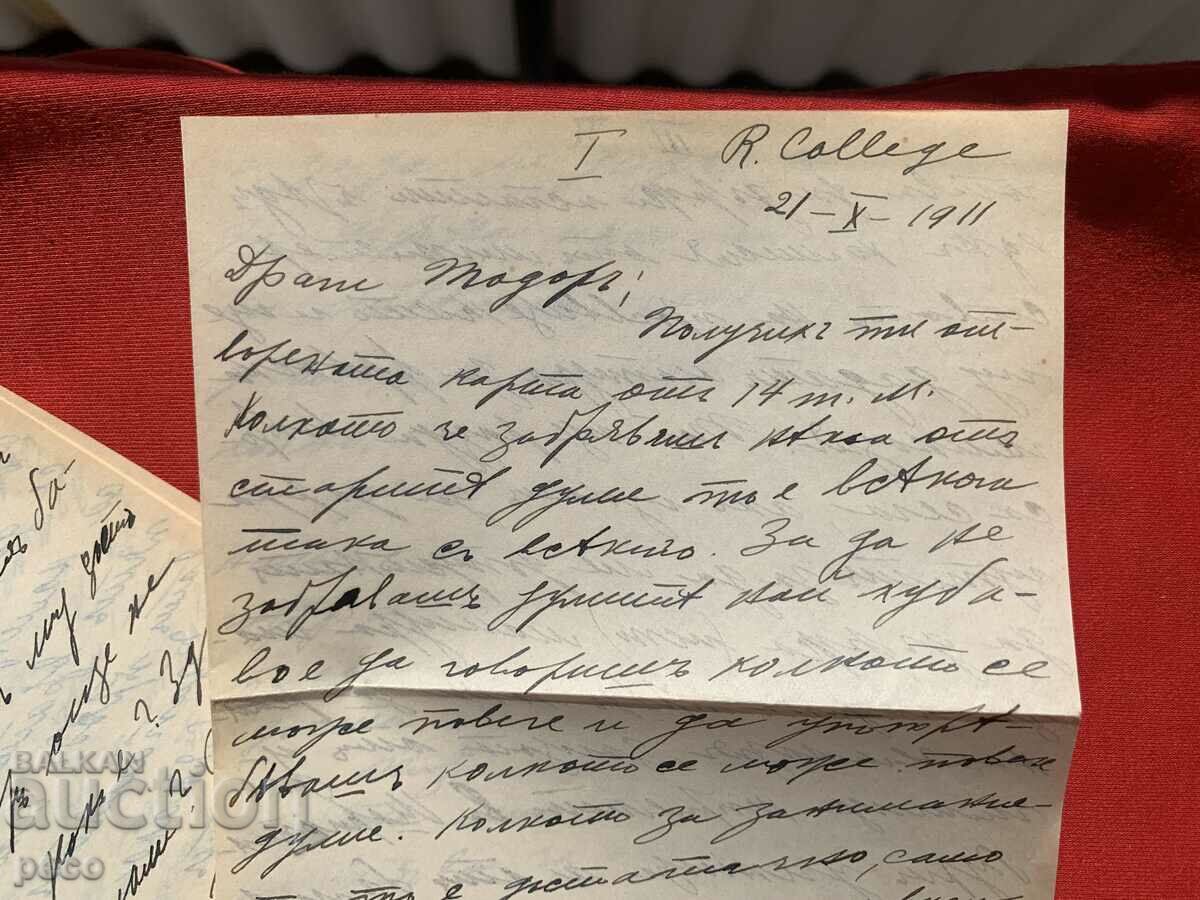 I R. College
21-X-1911
Драги Тодоръ!
Получихъ ти от-
ворената карта отъ 14 т. м.
Колкото че забрявяшъ някоа отъ
старитѣ думе то е всякога
така съ всякиго. За да не
забравашъ думитѣ най хуба-
вое да говоришъ колкото се
може повече и да употрѣ-
бявашъ колкото се може повечи
думе. Колкото за занимание-
то то е достатачно, само
ба-
му доста
не
BALKAN
auction
peco